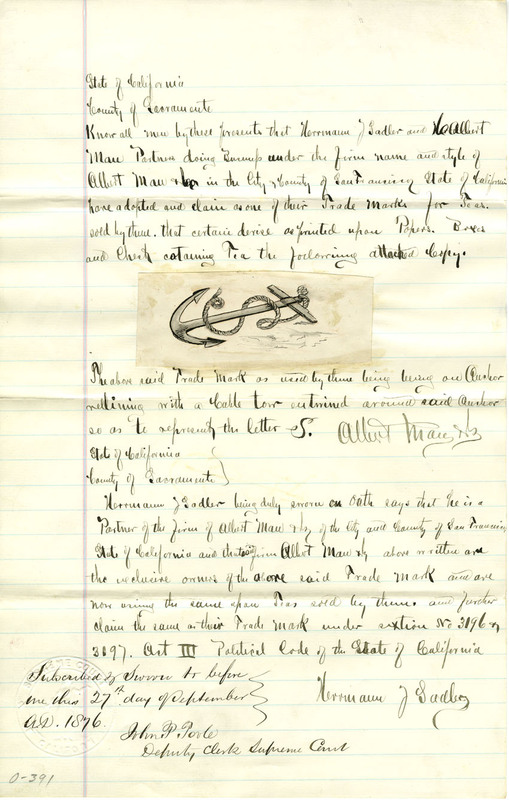 State of California
County of Sacramento
Know all men by these presents that Herrmann J Sadler and Albert
Mau Partners doing under the firm name and style of
Albert Mau & Co in the City & County of San Francisco State of California
have adopted and claim as one of their Trade Marks for Teas.
sold by them. that certain device as printed upon Papers. Boxes
and Chests cotaining Tea the following attached Copy.
The above said Trade Mark as used by them being being an Anchor
reclining with a Cable tow entwined around said Anchor
so as to represent the letter S. Albert Mau & Co
State of California
County of Sacramento
Herrmann J Sadler being duly sworn on Oath says that he is a
Partner of the firm of Albert Mau & Co of the City and County of San Francisco
State of California and that said firm Albert Mau & Co above written are
the exclusive owners of the above said Trade Mark and are
now using the same upon Teas sold by them. and further
claim the same as their Trade Mark under section No 3196 &
3197. Art III Political Code of the State of California
Subscribed & Sworn to before
me this 27th day of September
A.D. 1876.
Herrmann J Sadler
John P. Poole
Deputy Clerk Supreme Court
0-391